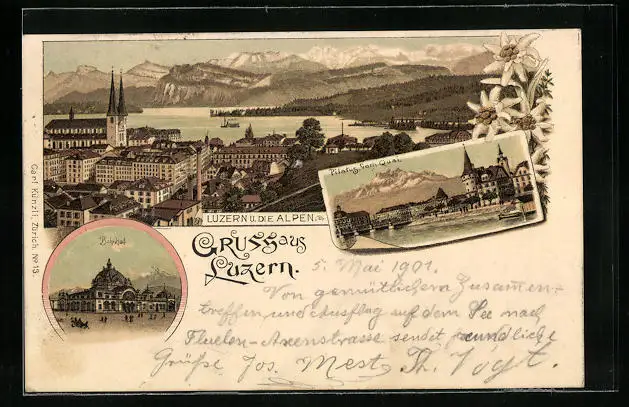 LUZERN U. DIE ALPEN.
Pilatus vom Quai.
Bahnhof
GRUSS aus
Luzern.
Carl Künzli, Zürich. No 13.
5. Mai 1901.
Von gemütlichem Zusamen-
treffen und Ausflug auf dem See nach
Fluelen-Axenstrasse sendet freundliche
Grüße Jos. Mest Th. Vogt.